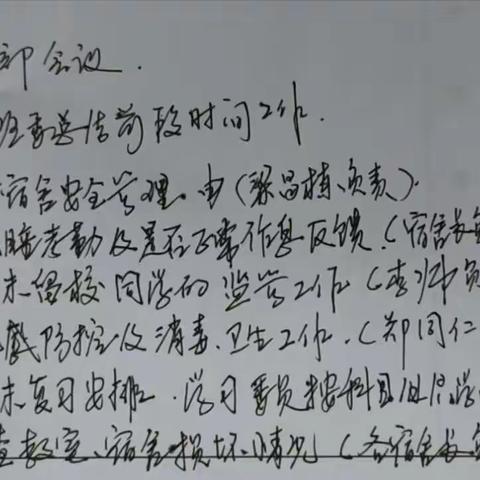 部会议.
班委总结前段时间工作.
宿舍安全管理.由(梁昌栋负责).
睡考勤及是否正常作息反馈.(宿舍长负
末留校同学的监管工作(李师负
感防控及消毒.卫生工作.(郑同仁
末复习安排.学习委员按科目
查教室、宿舍损坏情况(各宿舍长负